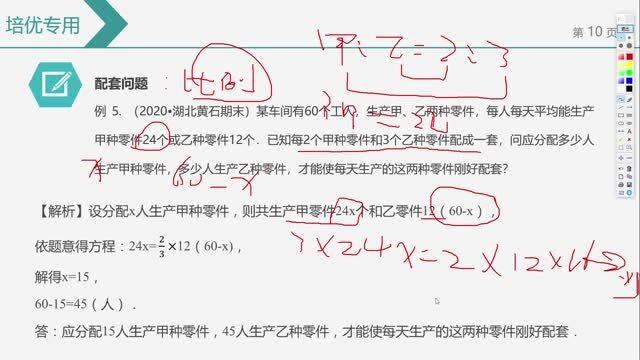 培优专用
第 10 页
配套问题 ： [比例]
甲:乙=2:3
3甲=2乙
例 5. （2020•湖北黄石期末）某车间有60个工人，生产甲、乙两种零件，每人每天平均能生产
甲种零件24个或乙种零件12个．已知每2个甲种零件和3个乙种零件配成一套，问应分配多少人
生产甲种零件，多少人生产乙种零件，才能使每天生产的这两种零件刚好配套？
x 60-x
【解析】设分配x人生产甲种零件，则共生产甲零件24x个和乙零件12（60-x），
依题意得方程：24x=2/3×12（60-x)，
3×24x=2×12×(60-x)
解得x=15，
60-15=45（人）．
答：应分配15人生产甲种零件，45人生产乙种零件，才能使每天生产的这两种零件刚好配套．